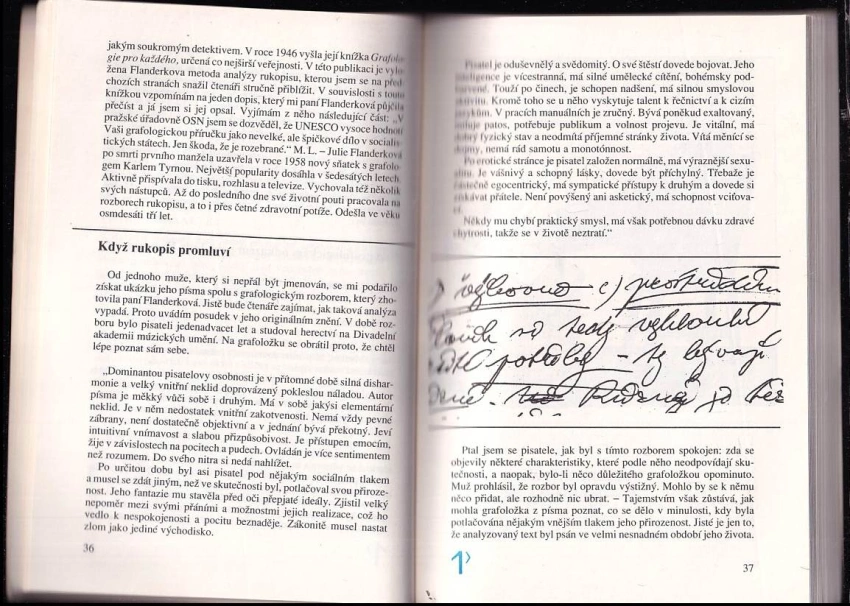 jakým soukromým detektivem. V roce 1946 vyšla její knížka Grafolo-
gie pro každého, určená co nejširší veřejnosti. V této publikaci je
žena Flanderkova metoda analýzy rukopisu, kterou jsem se na před
chozích stranách snažil čtenáři stručně přiblížit. V souvislosti s touto
knížkou vzpomínám na jeden dopis, který mi paní Flanderková půjčila
přečíst a já jsem si jej opsal. Vyjímám z něho následující část: „V
pražské úřadovně OSN jsem se dozvěděl, že UNESCO vysoce hodnotí
Vaši grafologickou příručku jako nevelké, ale špičkové dílo v socialis-
tických státech. Jen škoda, že je rozebrané.“ M. L. – Julie Flanderková
po smrti prvního manžela uzavřela v roce 1958 nový sňatek s grafolo-
gem Karlem Tymou. Největší popularity dosáhla v šedesátých letech.
Aktivně přispívala do tisku, rozhlasu a televize. Vychovala též několik
svých nástupců. Až do posledního dne své životní pouti pracovala na
rozborech rukopisu, a to i přes četné zdravotní potíže. Odešla ve věku
osmdesáti tří let.
Když rukopis promluví
Od jednoho muže, který si nepřál být jmenován, se mi podařilo
získat ukázku jeho písma spolu s grafologickým rozborem, který zho-
tovila paní Flanderková. Jistě bude čtenáře zajímat, jak taková analýza
vypadá. Proto uvádím posudek v jeho originálním znění. V době roz-
boru bylo pisateli jedenadvacet let a studoval herectví na Divadelní
akademii múzických umění. Na grafoložku se obrátil proto, že chtěl
lépe poznat sám sebe.
„Dominantou pisatelovy osobnosti je v přítomné době silná dishar-
monie a velký vnitřní neklid doprovázený pokleslou náladou. Autor
písma je měkký vůči sobě i druhým. Má v sobě jakýsi elementární
neklid. Je v něm nedostatek vnitřní zakotvenosti. Nemá vždy pevné
zábrany, není dostatečně objektivní a v jednání bývá překotný. Jeví
intuitivní vnímavost a slabou přizpůsobivost. Je přístupen emocím,
žije v závislostech na pocitech a pudech. Ovládán je více sentimentem
než rozumem. Do svého nitra si nedá nahlížet.
Po určitou dobu byl asi pisatel pod nějakým sociálním tlakem
a musel se zdát jiným, než ve skutečnosti byl, potlačoval svou přiroze-
nost. Jeho fantazie mu stavěla před oči přepjaté ideály. Zjistil velký
nepoměr mezi svými přáními a možnostmi jejich realizace, což ho
vedlo k nespokojenosti a pocitu beznaděje. Zákonitě musel nastat
zlom jako jediné východisko.
36
Pisatel je oduševnělý a svědomitý. O své štěstí dovede bojovat. Jeho
inteligence je vícestranná, má silné umělecké cítění, bohémsky pod-
barvené. Touží po činech, je schopen nadšení, má silnou smyslovou
aktivitu. Kromě toho se u něho vyskytuje talent k řečnictví a k cizím
jazykům. V pracích manuálních je zručný. Bývá poněkud exaltovaný,
miluje patos, potřebuje publikum a volnost projevu. Je vitální, má
dobrý fyzický stav a neodmítá příjemné stránky života. Vítá měnící se
dojmy, nemá rád samotu a monotónnost.
Po erotické stránce je pisatel založen normálně, má výraznější sexu-
alitu. Je vášnivý a schopný lásky, dovede být příchylný. Třebaže je
částečně egocentrický, má sympatické přístupy k druhým a dovede si
získávat přátele. Není povýšený ani asketický, má schopnost vcíťova-
Někdy mu chybí praktický smysl, má však potřebnou dávku zdravé
chytrosti, takže se v životě neztratí.“
potřeby – ty bývají
Ptal jsem se pisatele, jak byl s tímto rozborem spokojen: zda se
objevily některé charakteristiky, které podle něho neodpovídají sku-
tečnosti, a naopak, bylo-li něco důležitého grafoložkou opominuto.
Muž prohlásil, že rozbor byl opravdu výstižný. Mohlo by se k němu
něco přidat, ale rozhodně nic ubrat. – Tajemstvím však zůstává, jak
mohla grafoložka z písma poznat, co se dělo v minulosti, kdy byla
potlačována nějakým vnějším tlakem jeho přirozenost. Jisté je jen to,
že analyzovaný text byl psán ve velmi nesnadném období jeho života.
1›
37